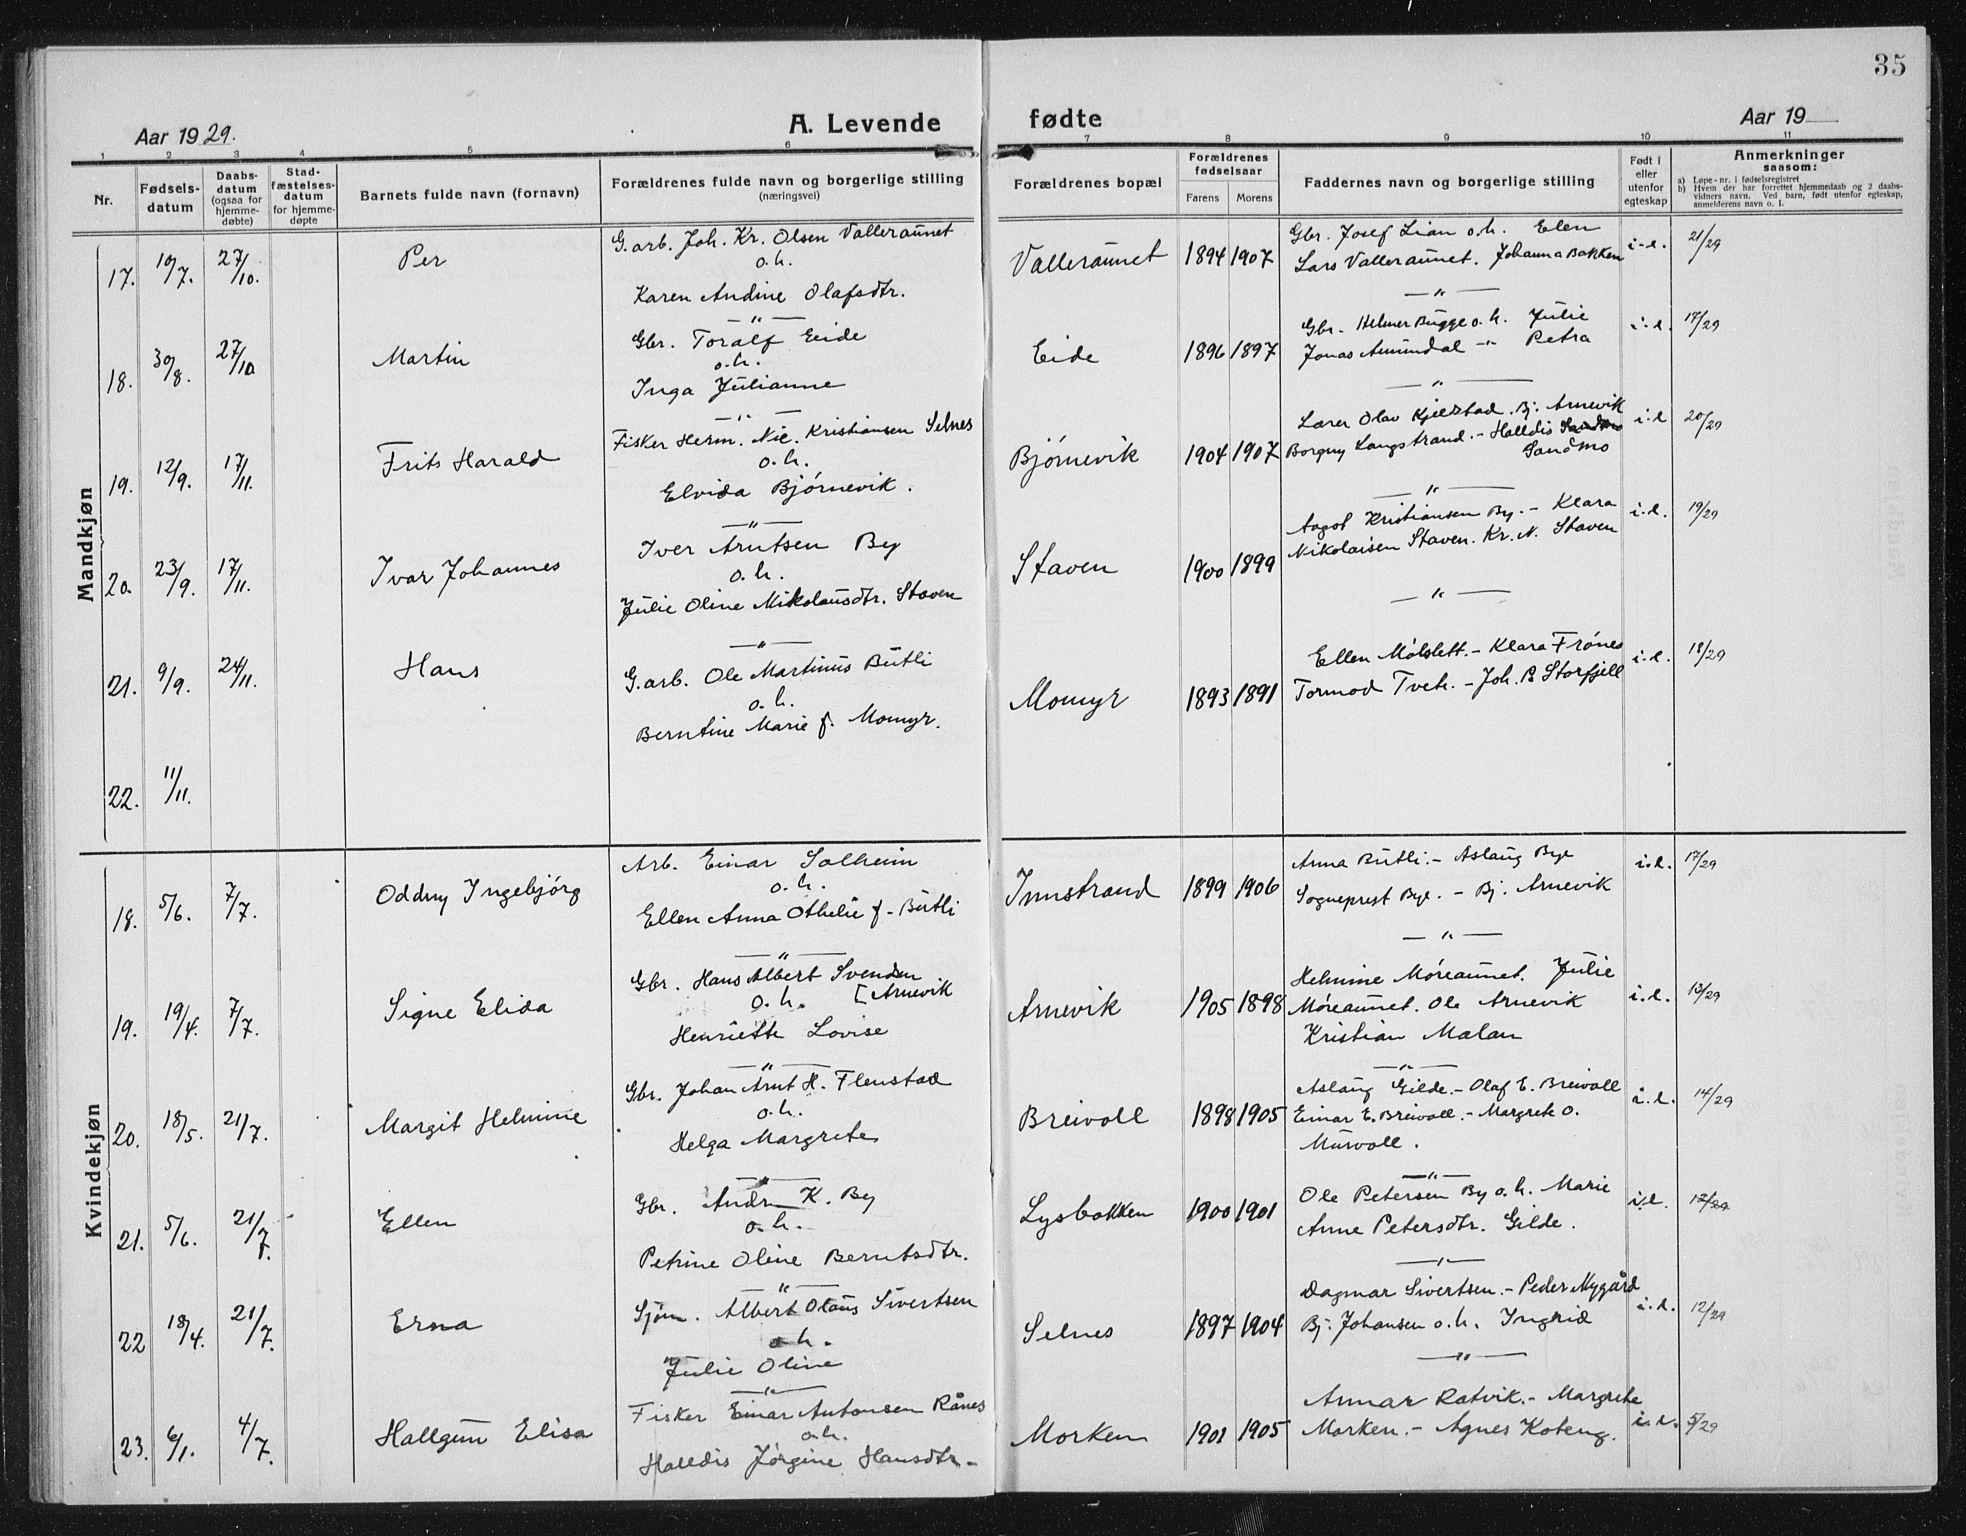 35
Aar 1929.
A. Levende
fødte
Aar 19
1 2 3 4 5 6 7 8 9 10 11
Nr.
Fødsels-
datum
Daabs-
datum
(ogsaa for
hjemme-
døbte)
Stad-
fæstelses-
datum
for hjemme-
døpte
Barnets fulde navn (fornavn)
Forældrenes fulde navn og borgerlige stilling
(næringsvei)
Forældrenes bopæl
Forældrenes
fødselsaar
Farens Morens
Faddernes navn og borgerlige stilling
Født i
eller
utenfor
egteskap
Anmerkninger
saasom:
a) Løpe-nr. i fødselsregistret
b) Hvem der har forrettet hjemmedaab og 2 daabs-
vidners navn. Ved barn, født utenfor egteskap,
anmelderens navn o. l.
Mandkjøn
17. 10/7. 27/10. Per
G.arb. Joh. Kr. Olsen Valleraunet
o.h.
Karen Andine Olafsdtr.
Valleraunet 1894 1907
Gbr. Josef Lian o.h. Elen
Lars Valleraunet. Johanna Bakken
i.e. 21/29
18. 30/8. 27/10 Martin
Gbr. Toralf Eide
o.h.
Inga Julianne
Eide 1896 1897
Gbr. Helmer Bugge o.h. Julie
Jonas Amundal -"- Petra
i.e. 17/29
19. 12/9. 17/11. Frits Harald
Fisker Herm. Nic. Kristiansen Selnes
o.h.
Elvida Bjørnevik.
Bjørnevik 1904 1907
Lærer Olav Kjelstad. Bj. Arnevik
Borguy Langstrand. - Halldis
Sandmo
i.e 20/29
20. 23/9. 17/11. Ivar Johannes
Iver Arntsen By
o.h.
Julie Oline Nikolausdtr. Staven
Staven 1900 1899
Aagot Kristiansen By. - Klara
Nikolaisen Staven. Kr. N. Staven
i.e. 19/29
21. 9/9. 24/11. Hans
G.arb. Ole Martinus Butli
o.h.
Berntine Marie f. Momyr.
Momyr 1893 1891
Ellen Mølslett. - Klara Frønes
Tormod Tveh. - Joh. P. Storfjell
i.e. 18/29
22. 11/11.
Kvindekjøn
18. 5/6. 7/7. Oddny Ingebjørg
Arb. Einar Solheim
o.h.
Ellen Anna Othelie f. Butli
Innstrand 1899 1906
Anna Butli. - Aslaug Bye
Sogneprest Bye. - Bj. Arnevik
i.e. 17/29
19. 19/4. 7/7. Signe Elida
Gbr. Hans Albert Svendsen
o.h. [Arnevik
Henriette Lovise
Arnevik 1905 1898
Helmine Møreaunet. Julie
Møreaunet. Ole Arnevik
Kristian Malan
i.e. 13/29
20. 18/5. 21/7. Margit Helmine
Gbr. Johan Arnt H. Flenstad
o.h.
Helga Margrete
Breivoll 1898 1905
Aslaug Gilde. - Olaf E. Breivoll
Einar E. Breivoll. - Margrete O.
Murvoll.
i.e. 14/29
21. 5/6. 21/7. Ellen
Gbr. Andr. K. By
o.h.
Petrine Oline Berntsdtr.
Lysbakken 1900 1901
Ole Petersen By o.h. Marie
Anne Petersdtr. Gilde.
i.e.
22 18/4. 21/7. Erna
Sjøm. Albert Olaus Sivertsen
o.h.
Julie Oline
Selnes 1897 1904
Dagmar Sivertsen. - Peder Nygård
Bj. Johansen o.h. Ingrid
i.e. 12/29
23. 6/1. 4/7. Hallgun Elisa
Fisker Einar Antonsen Rånes
o.h.
Halldis Jørgine Hansdtr.
Morken 1901 1905
Annar Ratvik. - Margrete
Morken. - Agnes Koteng.
i.e. 5/29